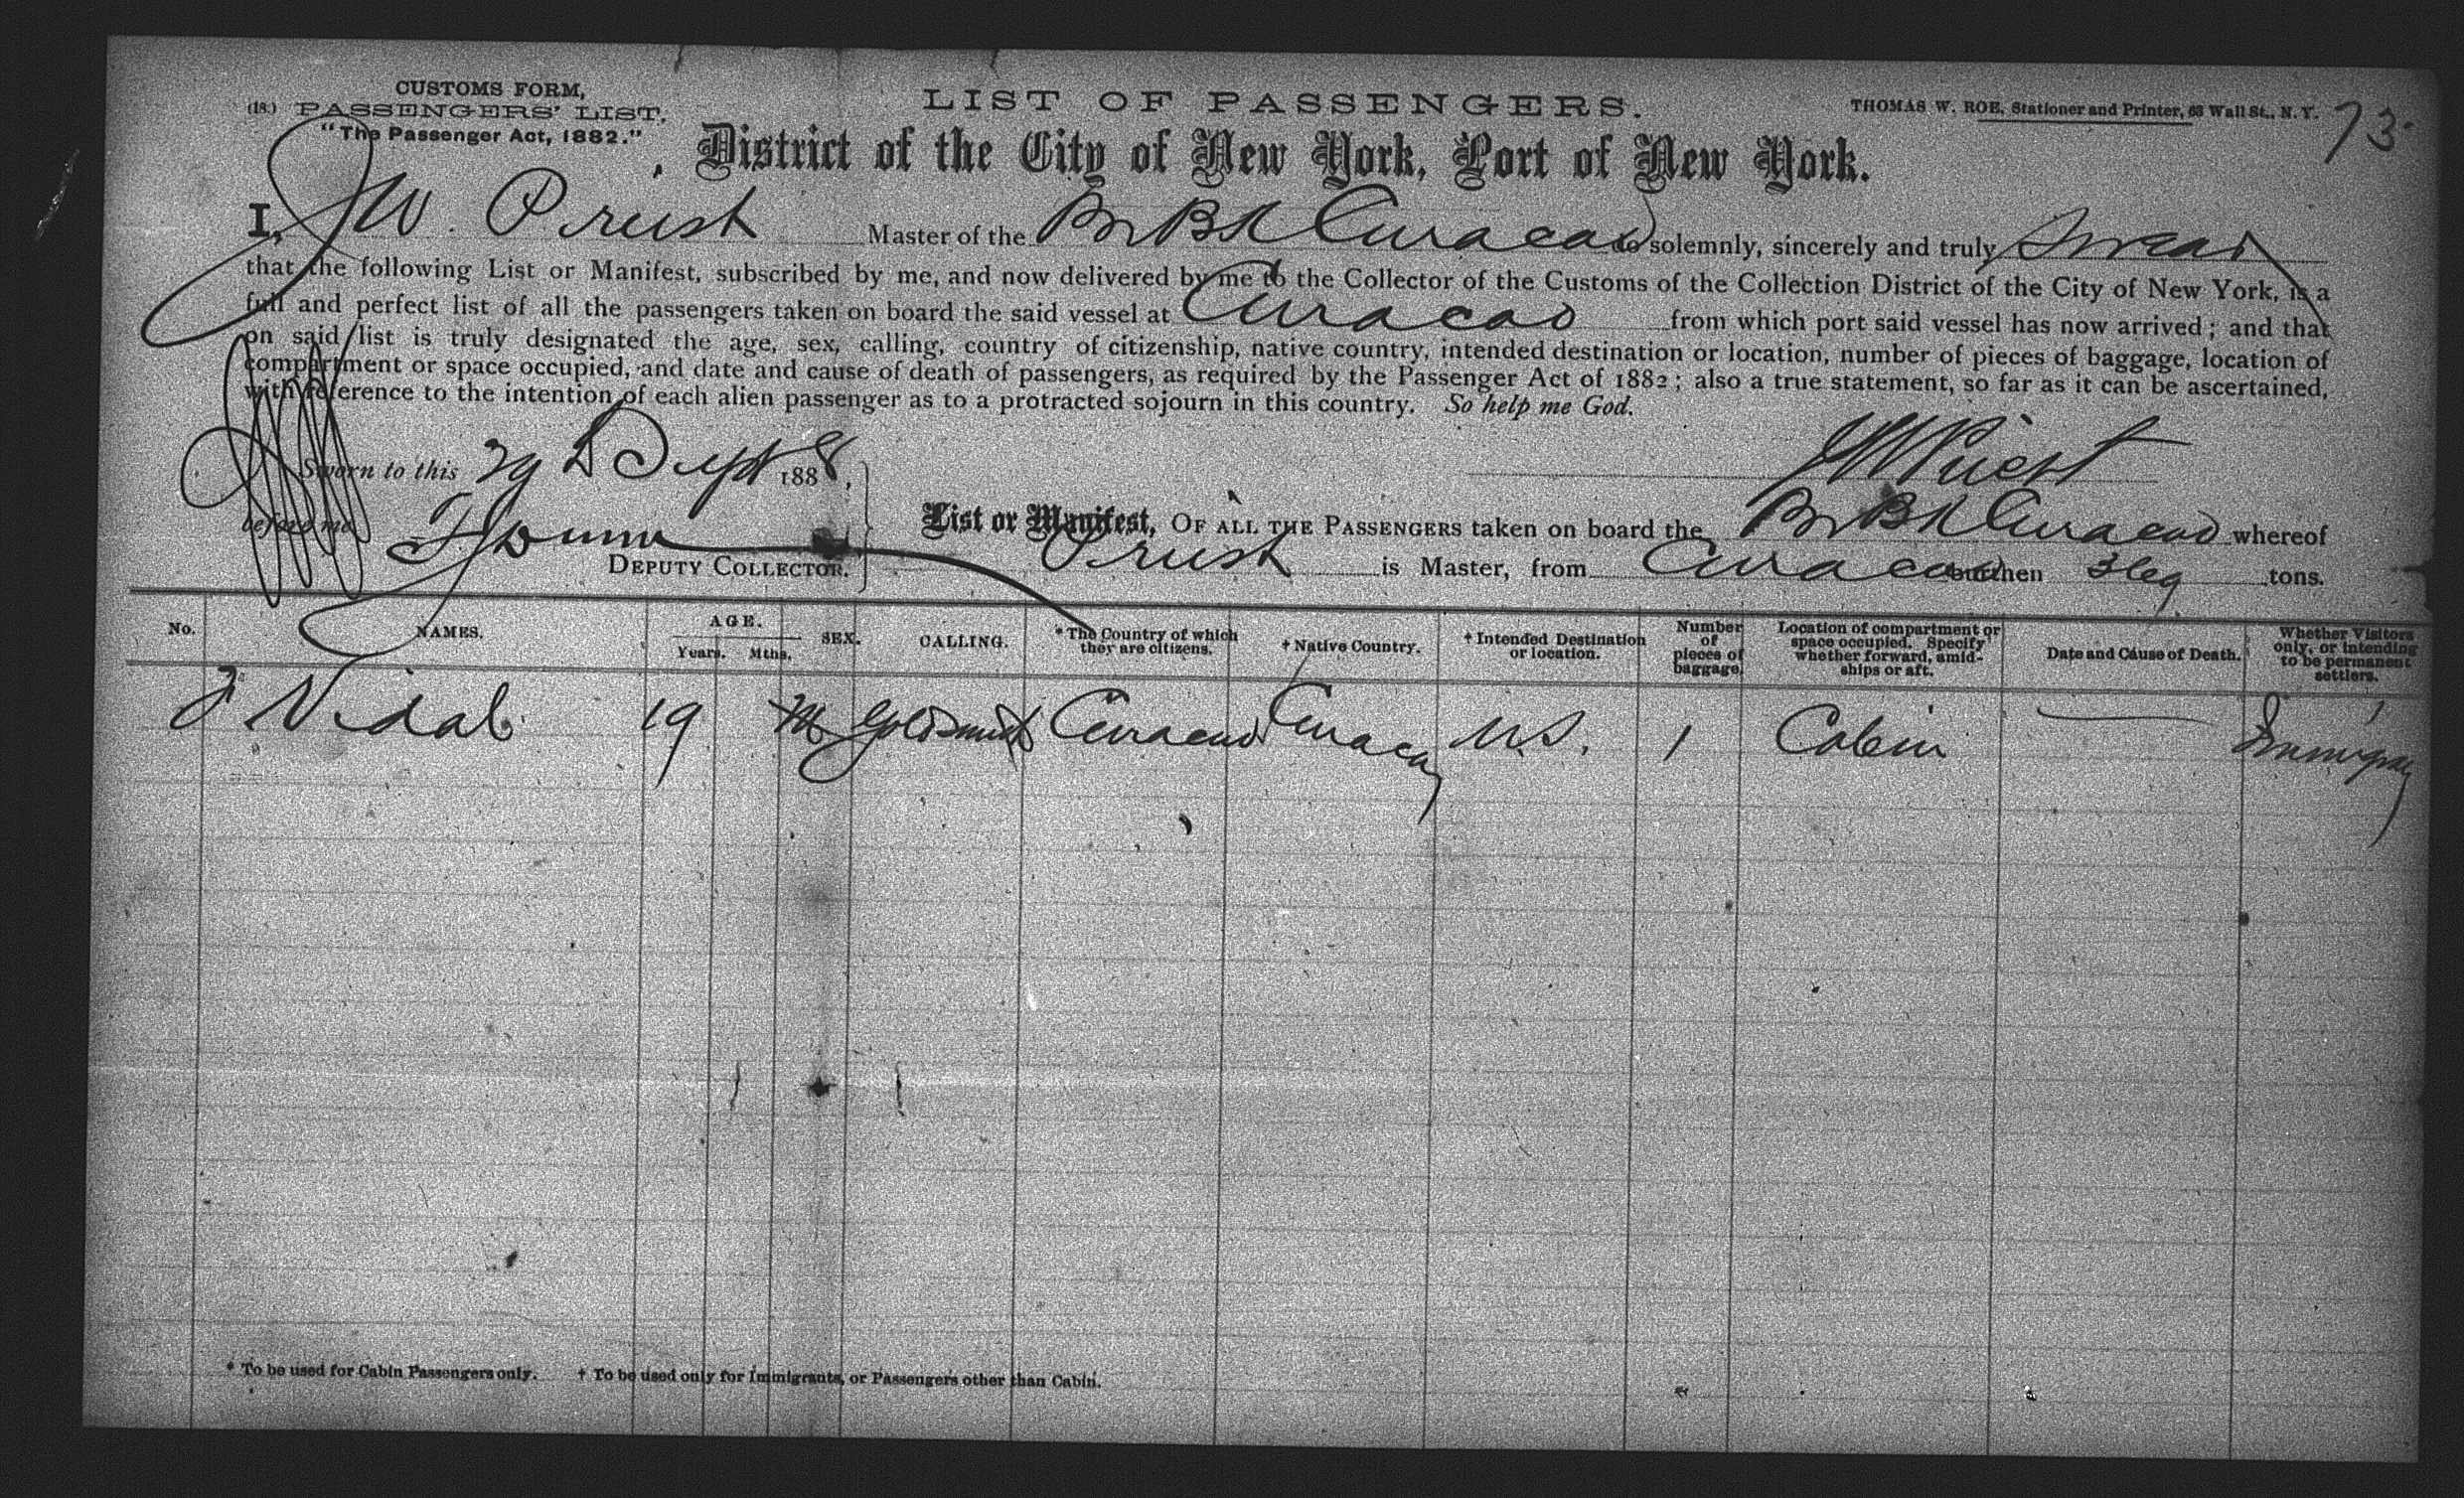 CUSTOMS FORM,
(18.) PASSENGERS' LIST,
"The Passenger Act, 1882."
LIST OF PASSENGERS.
THOMAS W. ROE, Stationer and Printer, 63 Wall St., N. Y.
73
District of the City of New York, Port of New York.
I, JW. Prust Master of the Br Bk Curacao do solemnly, sincerely and truly Swear
that the following List or Manifest, subscribed by me, and now delivered by me to the Collector of the Customs of the Collection District of the City of New York, is a
full and perfect list of all the passengers taken on board the said vessel at Curacao from which port said vessel has now arrived; and that
on said list is truly designated the age, sex, calling, country of citizenship, native country, intended destination or location, number of pieces of baggage, location of
compartment or space occupied, and date and cause of death of passengers, as required by the Passenger Act of 1882; also a true statement, so far as it can be ascertained,
with reference to the intention of each alien passenger as to a protracted sojourn in this country. So help me God.
Sworn to this 29 Sept 1888,
JW Prust
before me
DEPUTY COLLECTOR.
List or Manifest, OF ALL THE PASSENGERS taken on board the Br Bk Curacao whereof
Prust is Master, from Curacao burthen tons.
No. NAMES. AGE. Years. Mths. SEX. CALLING. * The Country of which they are citizens. † Native Country. † Intended Destination or location. Number of pieces of baggage. Location of compartment or space occupied. Specify whether forward, amidships or aft. Date and Cause of Death. Whether Visitors only, or intending to be permanent settlers.
J Vidal 19 M Goldsmith Curacao Curacao U.S. 1 Cabin
* To be used for Cabin Passengers only. † To be used only for Immigrants, or Passengers other than Cabin.